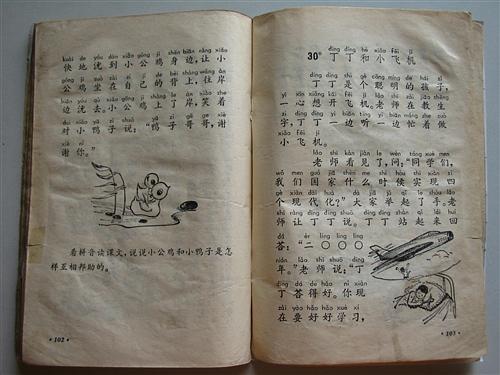 kuài de yóu dào xiǎo gōng jī shēn biān ràng xiǎo
快地沋到小公鸡身边,让小
gōng jī zuò zài zì jǐ de bèi shàng wǎng àn
公鸡坐在自己的背上,往岸
biān yóu qù xiǎo gōng jī shàng le àn xiào zhe
边沋去。小公鸡上了岸,笑着
duì xiǎo yā zi shuō yā zi gē ge xiè
对小鸭子说:“鸭子哥哥,谢
xie nǐ
谢你。”
看拼音读课文,说说小公鸡和小鸭子是怎
样互相帮助的。
·102·
dīng dīng hé xiǎo fēi jī
30* 丁丁和小飞机
dīng dīng shì gè cōng míng de hái zi
丁丁是个聪明的孩子,
yī xīn xiǎng kāi fēi jī lǎo shī zài jiāo shēng
一心想开飞机。老师在教生
zì dīng dīng yī biān tīng yī biān máng zhe zuò
字,丁丁一边听一边忙着做
xiǎo fēi jī
小飞机。
lǎo shī kàn jiàn le wèn tóng xué men
老师看见了,问:“同学们,
wǒ men guó jiā shén me shí hòu shí xiàn sì
我们国家什么时候实现四
gè xiàn dài huà dà jiā jǔ qǐ le shǒu lǎo
个现代化?”大家举起了手。老
shī ràng dīng dīng shuō dīng dīng zhàn qǐ lái huí
师让丁丁说。丁丁站起来回
dá èr líng líng líng
答:“二〇〇〇
nián lǎo shī shuō dīng
年。”老师说:“丁
dīng dá de hǎo nǐ xiàn
丁答得好。你现
zài yào hǎo hǎo xué xí
在要好好学习,
·103·